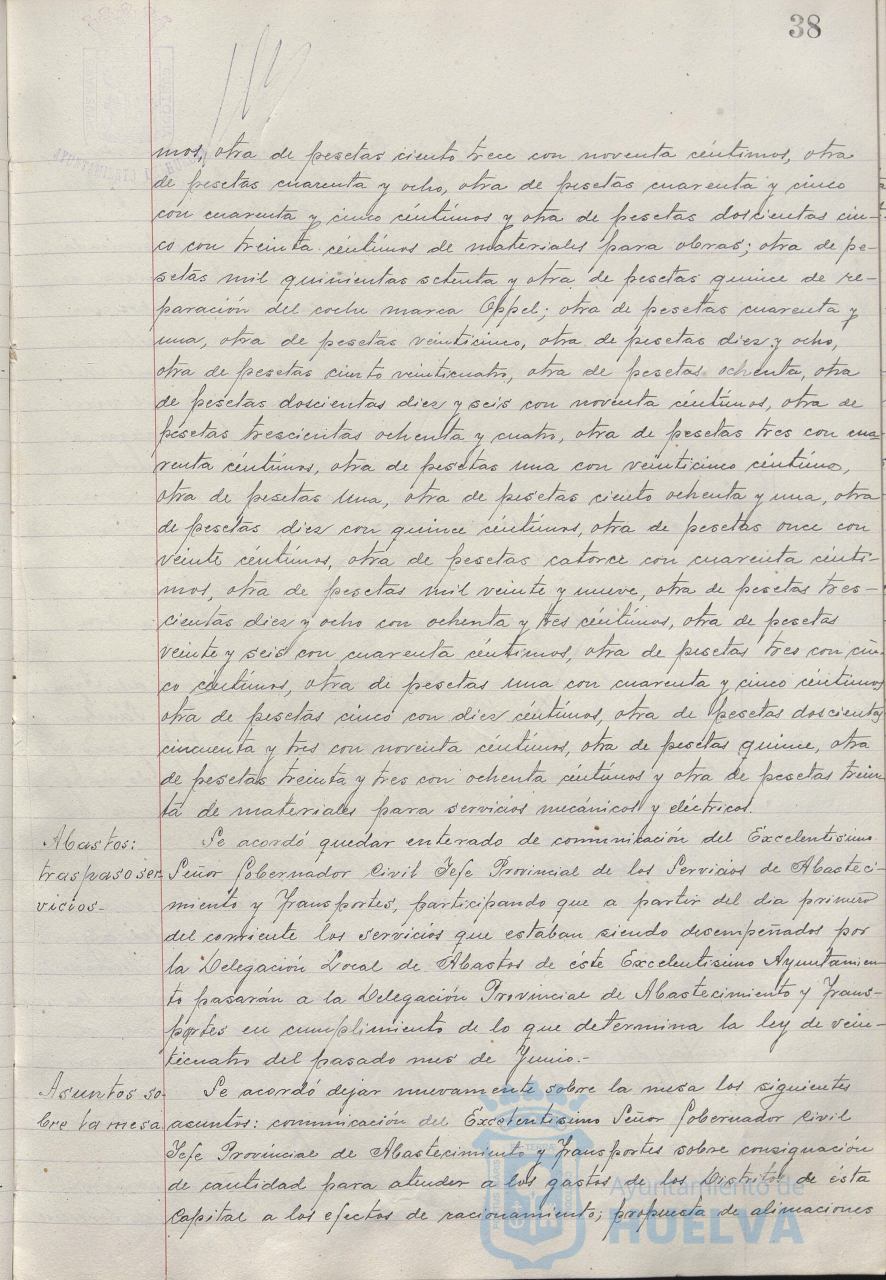 38
mos, otra de pesetas ciento trece con noventa céntimos, otra
de pesetas cuarenta y ocho, otra de pesetas cuarenta y cinco
con cuarenta y cinco céntimos y otra de pesetas doscientas cin-
co con treinta céntimos de materiales para obras; otra de pe-
setas mil quinientas setenta y otra de pesetas quince de re-
paración del coche marca Oppel; otra de pesetas cuarenta y
una, otra de pesetas veinticinco, otra de pesetas diez y ocho,
otra de pesetas ciento veinticuatro, otra de pesetas ochenta, otra
de pesetas doscientas diez y seis con noventa céntimos, otra de
pesetas trescientas ochenta y cuatro, otra de pesetas tres con cua-
renta céntimos, otra de pesetas una con veinticinco céntimos,
otra de pesetas una, otra de pesetas ciento ochenta y una, otra
de pesetas diez con quince céntimos, otra de pesetas once con
veinte céntimos, otra de pesetas catorce con cuarenta cénti-
mos, otra de pesetas mil veinte y nueve, otra de pesetas tres-
cientas diez y ocho con ochenta y tres céntimos, otra de pesetas
veinte y seis con cuarenta céntimos, otra de pesetas tres con cin-
co céntimos, otra de pesetas una con cuarenta y cinco céntimos
otra de pesetas cinco con diez céntimos, otra de pesetas doscientas
cincuenta y tres con noventa céntimos, otra de pesetas quince, otra
de pesetas treinta y tres con ochenta céntimos y otra de pesetas trein-
ta de materiales para servicios mecánicos y eléctricos.
Abastos:
traspaso ser-
vicios.-
Se acordó quedar enterado de comunicación del Excelentísimo
Señor Gobernador Civil Jefe Provincial de los Servicios de Abasteci-
miento y Transportes, participando que a partir del dia primero
del corriente los servicios que estaban siendo desempeñados por
la Delegación Local de Abastos de éste Excelentísimo Ayuntamien-
to pasarán a la Delegación Provincial de Abastecimiento y Trans-
portes en cumplimiento de lo que determina la ley de vein-
ticuatro del pasado mes de Junio.-
Asuntos so-
bre la mesa
Se acordó dejar nuevamente sobre la mesa los siguientes
asuntos: comunicación del Excelentísimo Señor Gobernador Civil
Jefe Provincial de Abastecimiento y Transportes sobre consignación
de cantidad para atender a los gastos de los Distritos de ésta
Capital a los efectos de racionamiento; propuesta de alineaciones
Ayuntamiento de
HUELVA